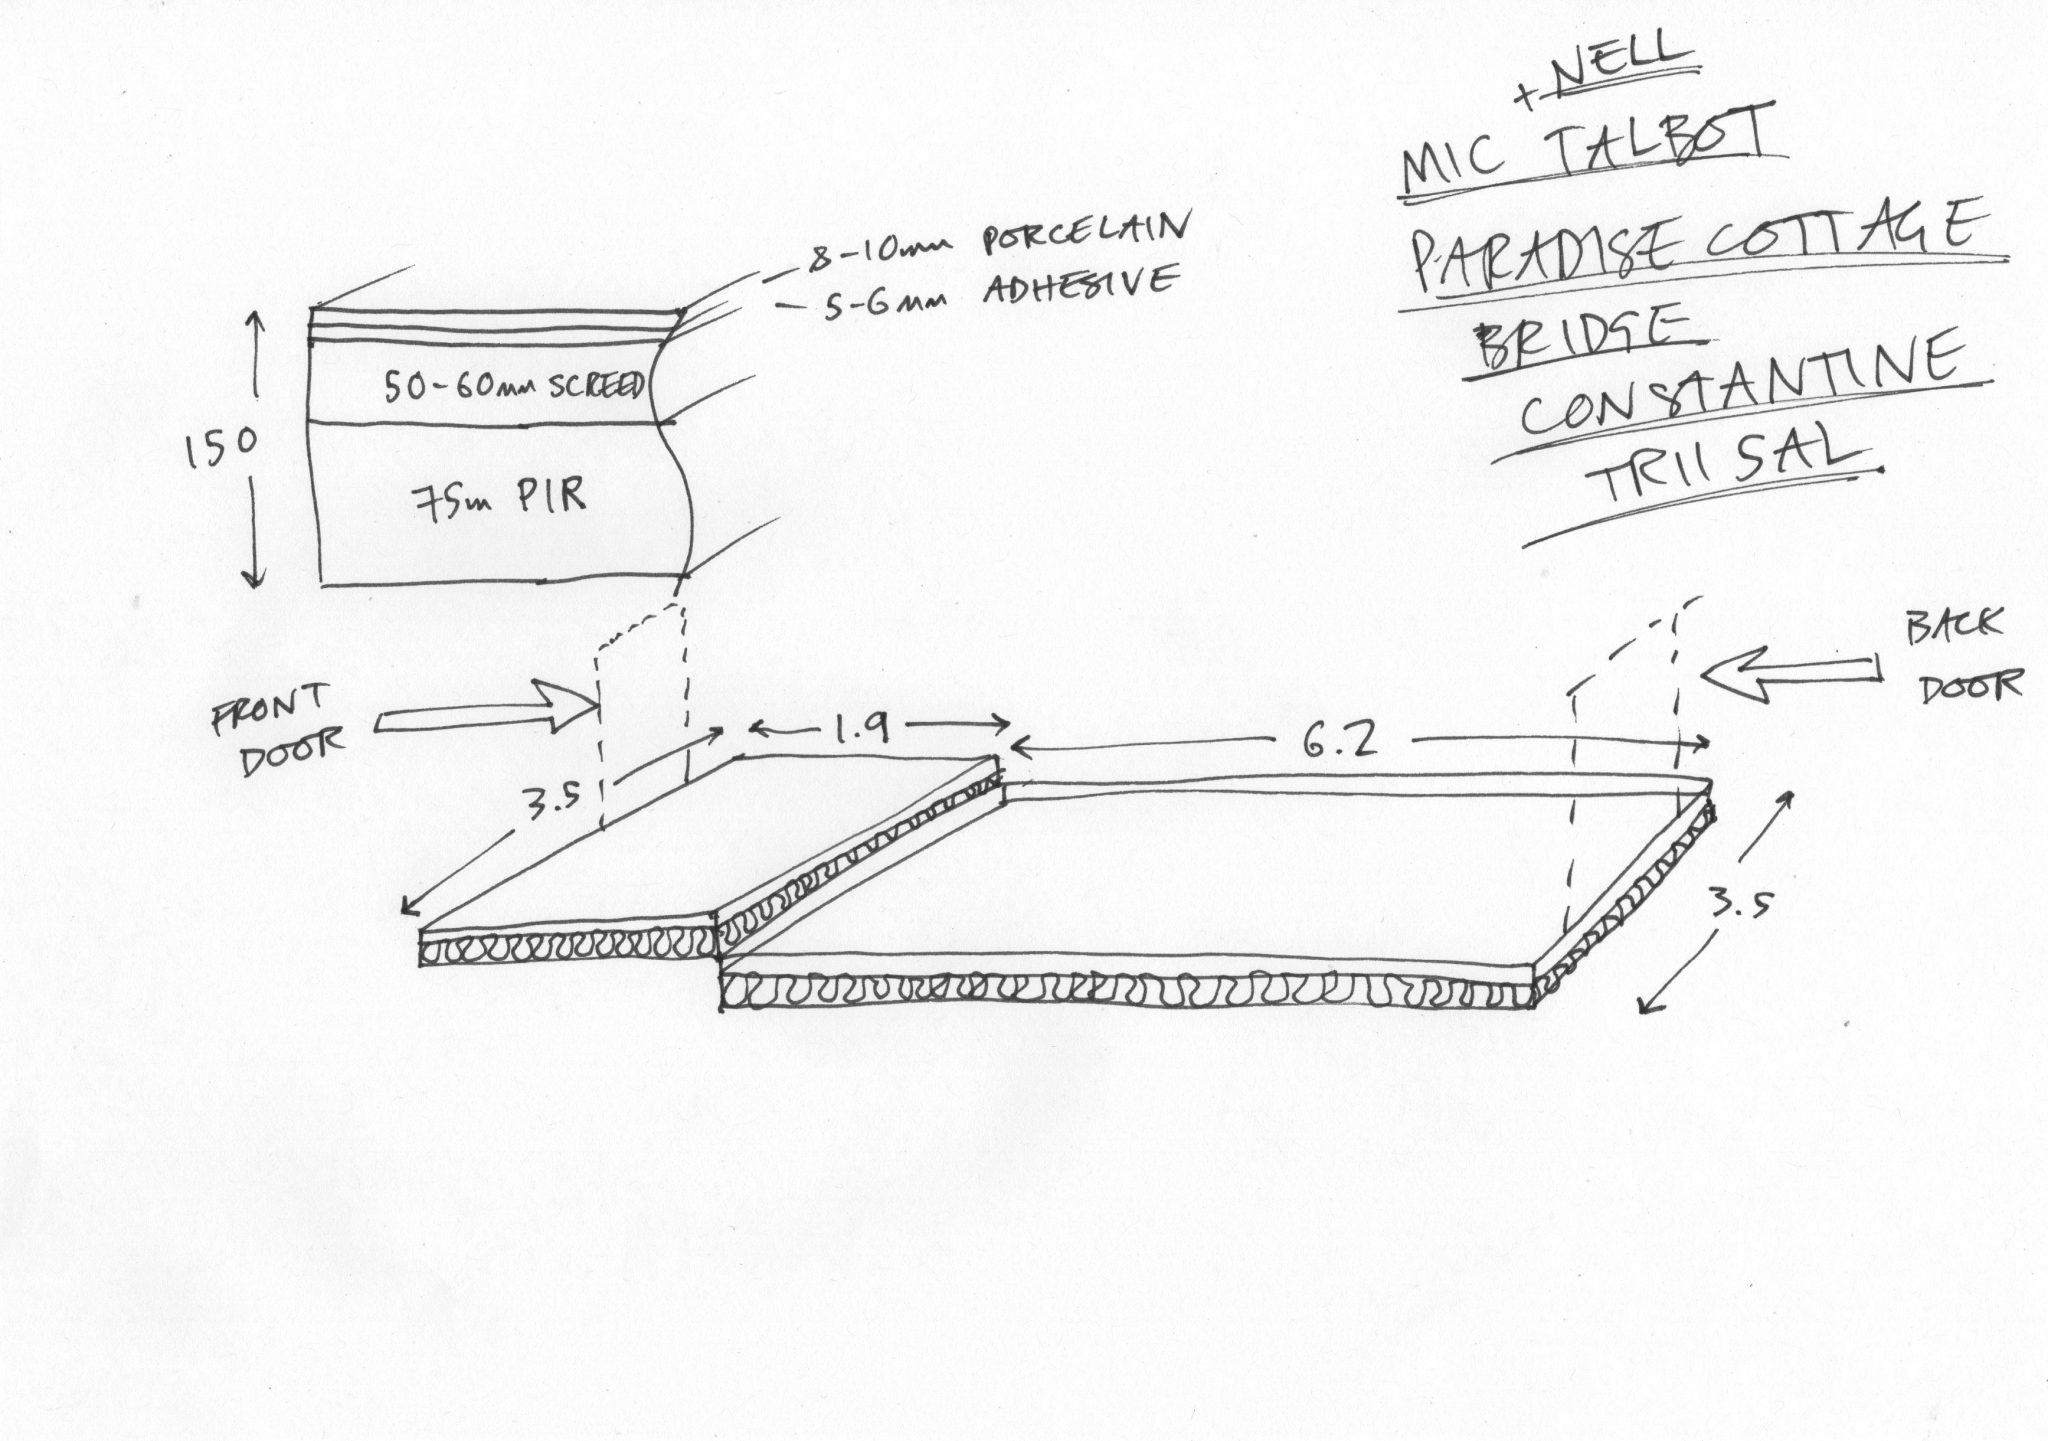 + NELL
MIC TALBOT
PARADISE COTTAGE
BRIDGE
CONSTANTINE
TR11 5AL
8-10mm PORCELAIN
5-6mm ADHESIVE
50-60mm SCREED
150
75m PIR
FRONT
DOOR
BACK
DOOR
1.9
6.2
3.5
3.5